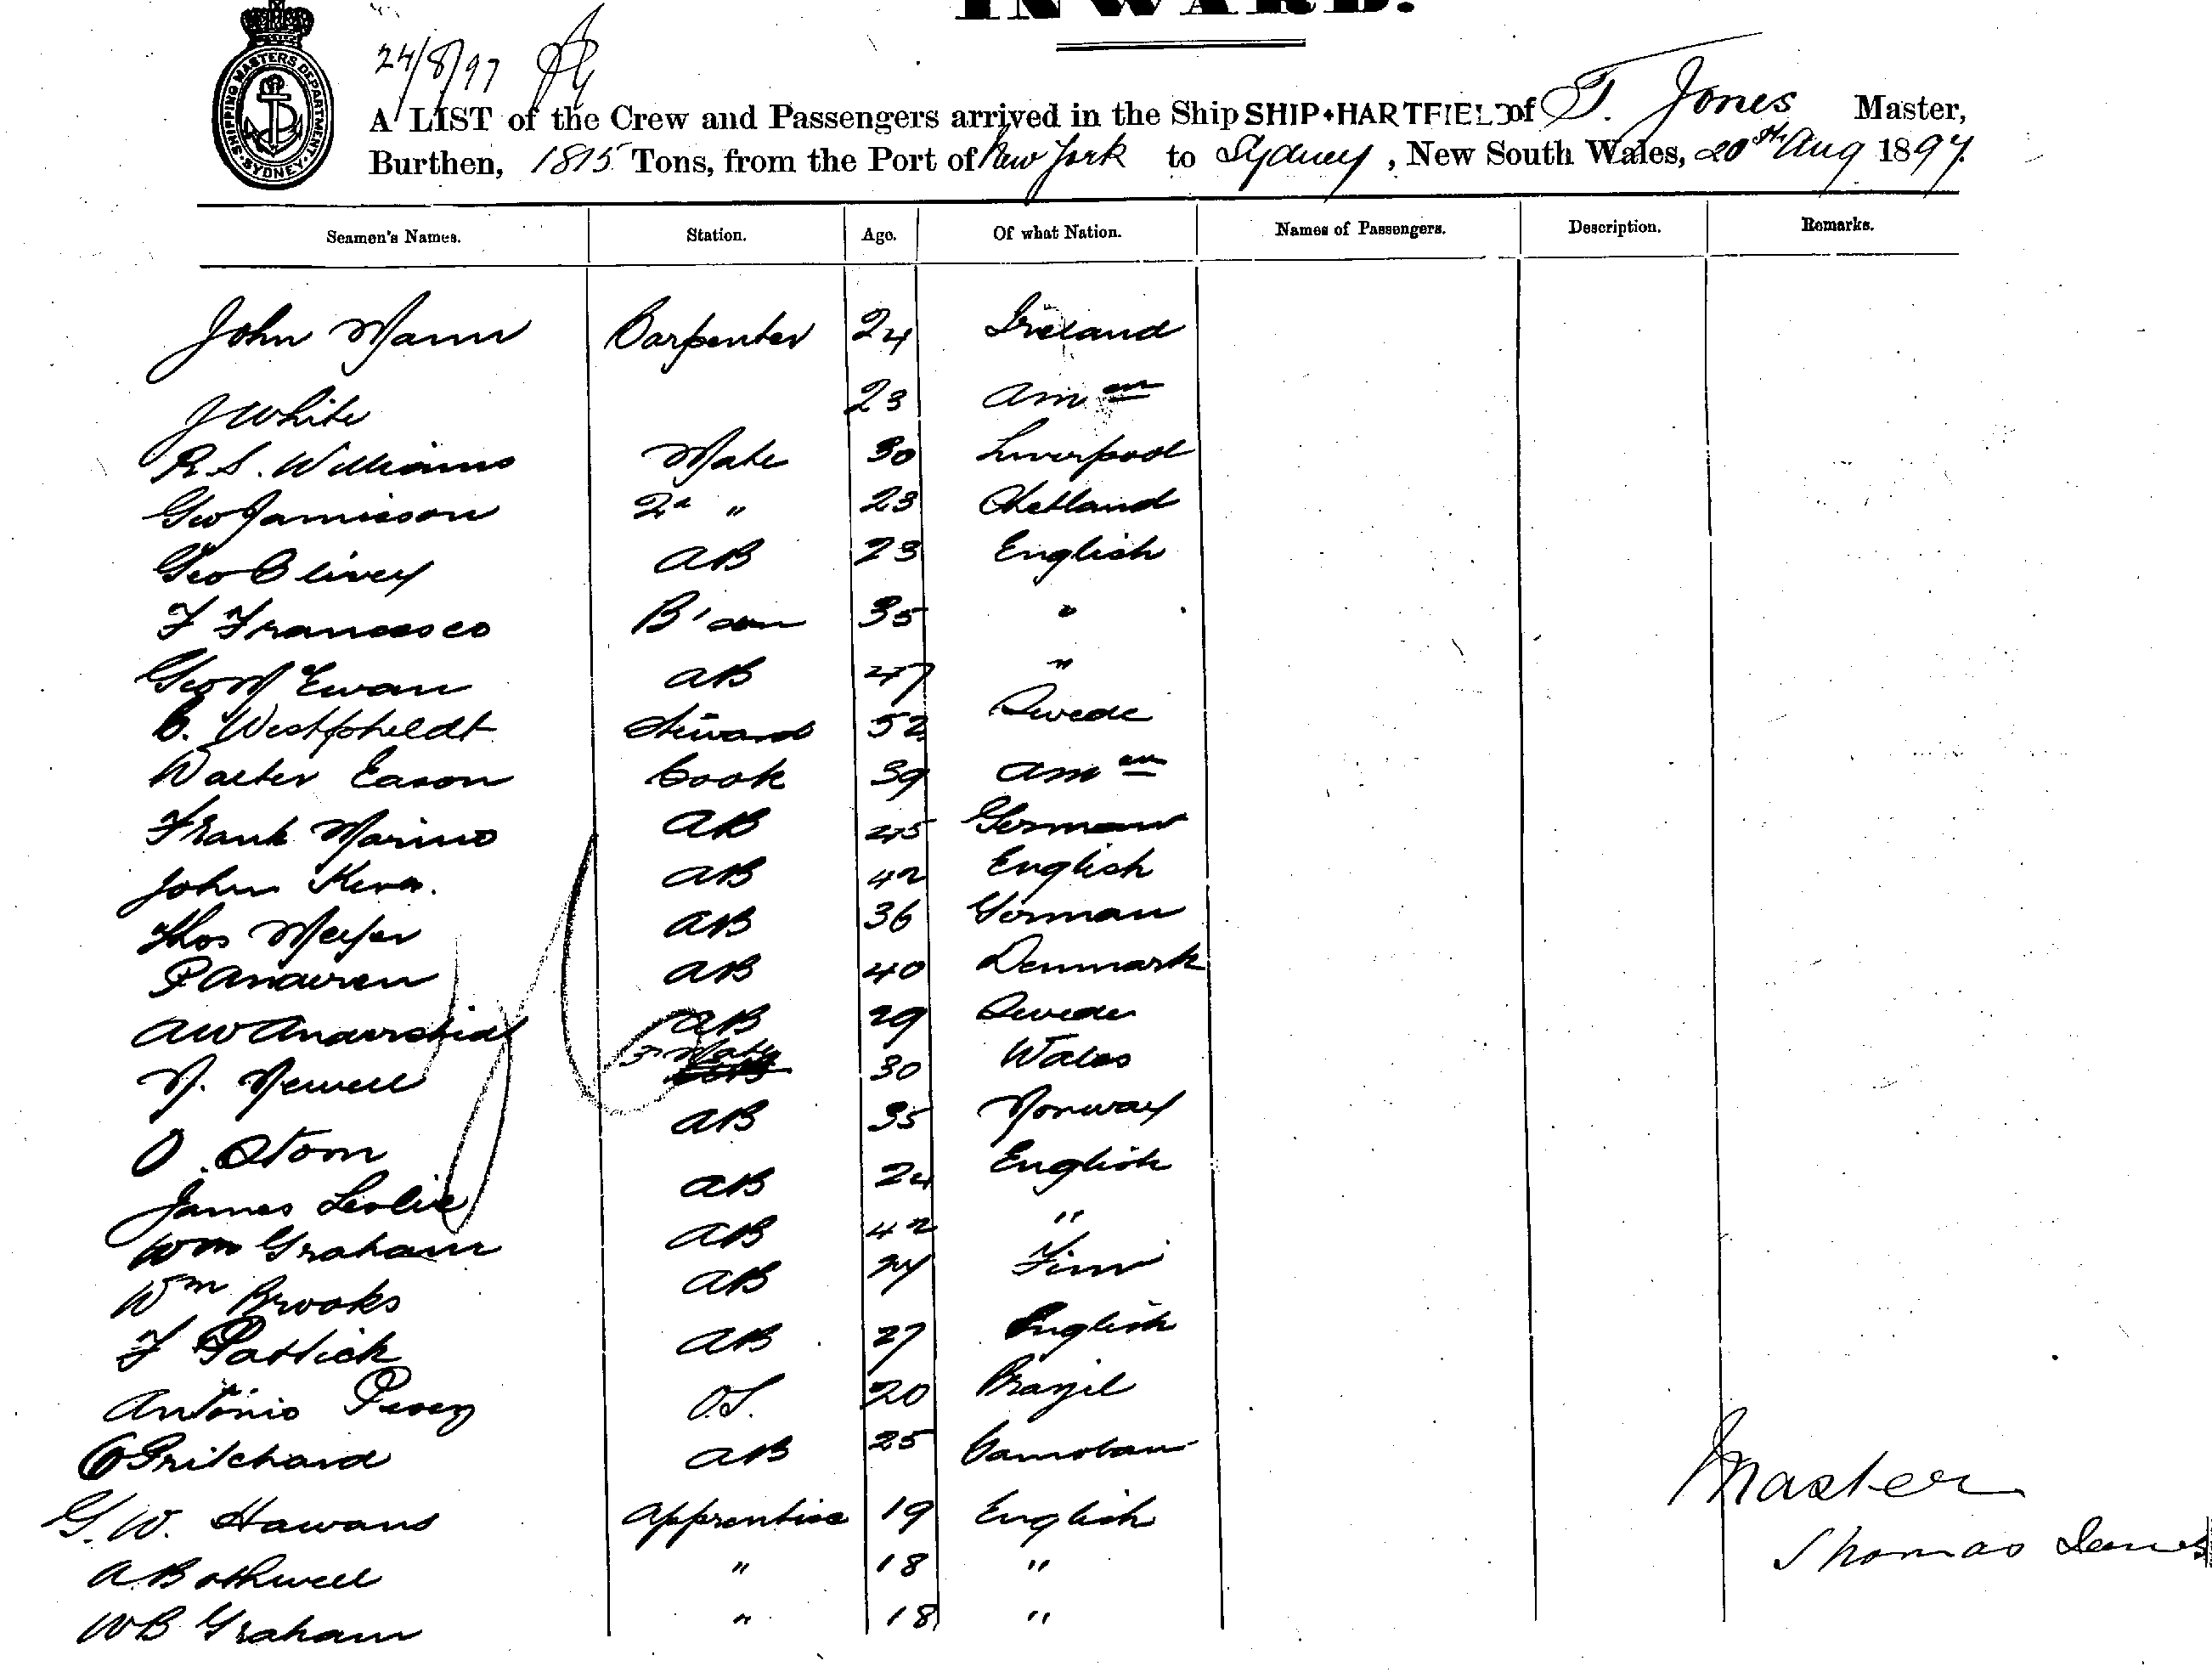 INWARD.
24/8/97
SHIPPING MASTERS DEPARTMENT. SYDNEY.
A LIST of the Crew and Passengers arrived in the Ship SHIP HARTFIELD of T. Jones Master,
Burthen, 1815 Tons, from the Port of New York to Sydney, New South Wales, 20th Aug 1897.
Seamen's Names. Station. Age. Of what Nation. Names of Passengers. Description. Remarks.
John Mann Carpenter 24 Ireland
J White 23 Amcn
R. S. Williams Mate 30 Liverpool
Geo Jamieson 2d " 23 Shetland
Geo Olivey AB 23 English
F Francesco B'sun 35 "
Geo Mc Ewan AB 47 "
C. Westfheldt Steward 52 Swede
Walter Eason Cook 39 Amcn
Frank Marino AB 45 German
John Kern. AB 42 English
Thos Meyer AB 36 German
P Andersen AB 40 Denmark
AW AB 29 Swede
N. Newell 3rd Mate 30 Wales
O. Storn AB 35 Norway
James Leslie AB 24 English
Wm Graham AB 42 "
Wm Brooks AB 24 Finn
F Pattick AB 27 English
Antonio Perez O.S. 20 Brazil
Pritchard AB 25
G. W. Hawans Apprentice 19 English
A Bothwell " 18 "
WB Graham " 18 "
Master
Thomas Jones